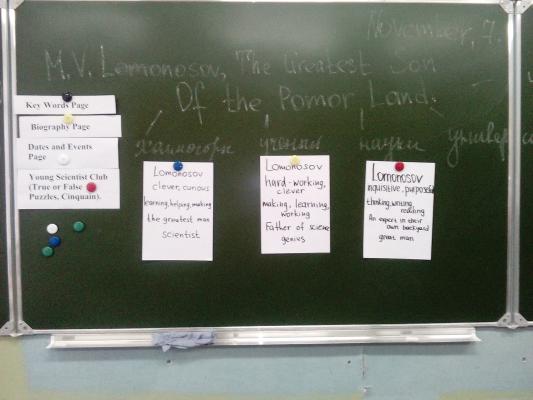 November, 7.
M.V. Lomonosov, The Greatest Son
Of the Pomor Land.
Холмогоры ученый науки универси
Key Words Page
Biography Page
Dates and Events
Page
Young Scientist Club
(True or False
Puzzles, Cinquain).
Lomonosov
clever, curious
learning, helping, making
the greatest man
scientist
Lomonosov
hard-working,
clever
making, learning,
working
Father of science
genius
Lomonosov
inquisitive, purposeful
thinking, writing,
reading
An expert in their
own backyard
great man